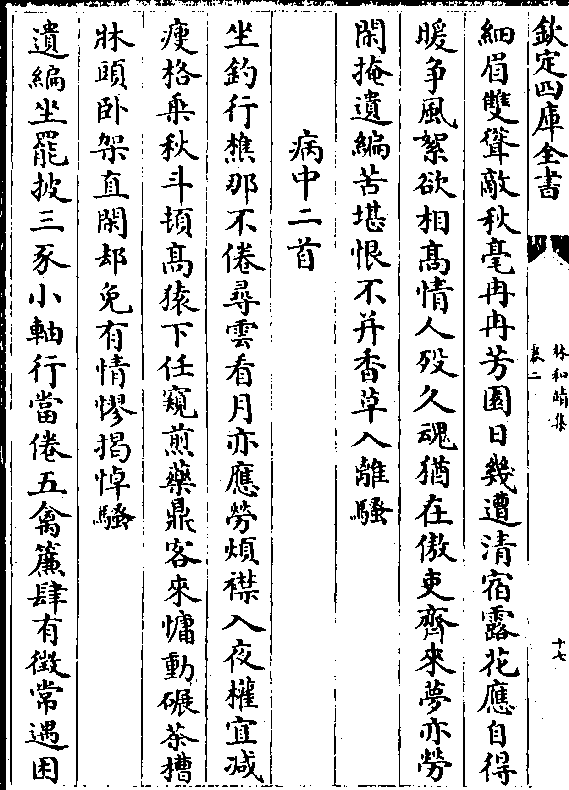 欽定四庫全書
林和靖集
卷二
十七
細眉雙聳敵秋毫冉冉芳園日幾遭清宿露花應自得
暖争風絮欲相髙情人殁久魂猶在傲吏齊來夢亦勞
閑掩遺編苦堪恨不并香草入離騷
病中二首
坐釣行樵那不倦尋雲看月亦應勞煩襟入夜權宜减
瘦格乘秋斗頓髙猿下任窺煎藥鼎客來慵動碾茶槽
牀頭卧架直閑却免有情憀揭悼騷
遺編坐罷披三豕小軸行當倦五禽簾肆有徵常遇困